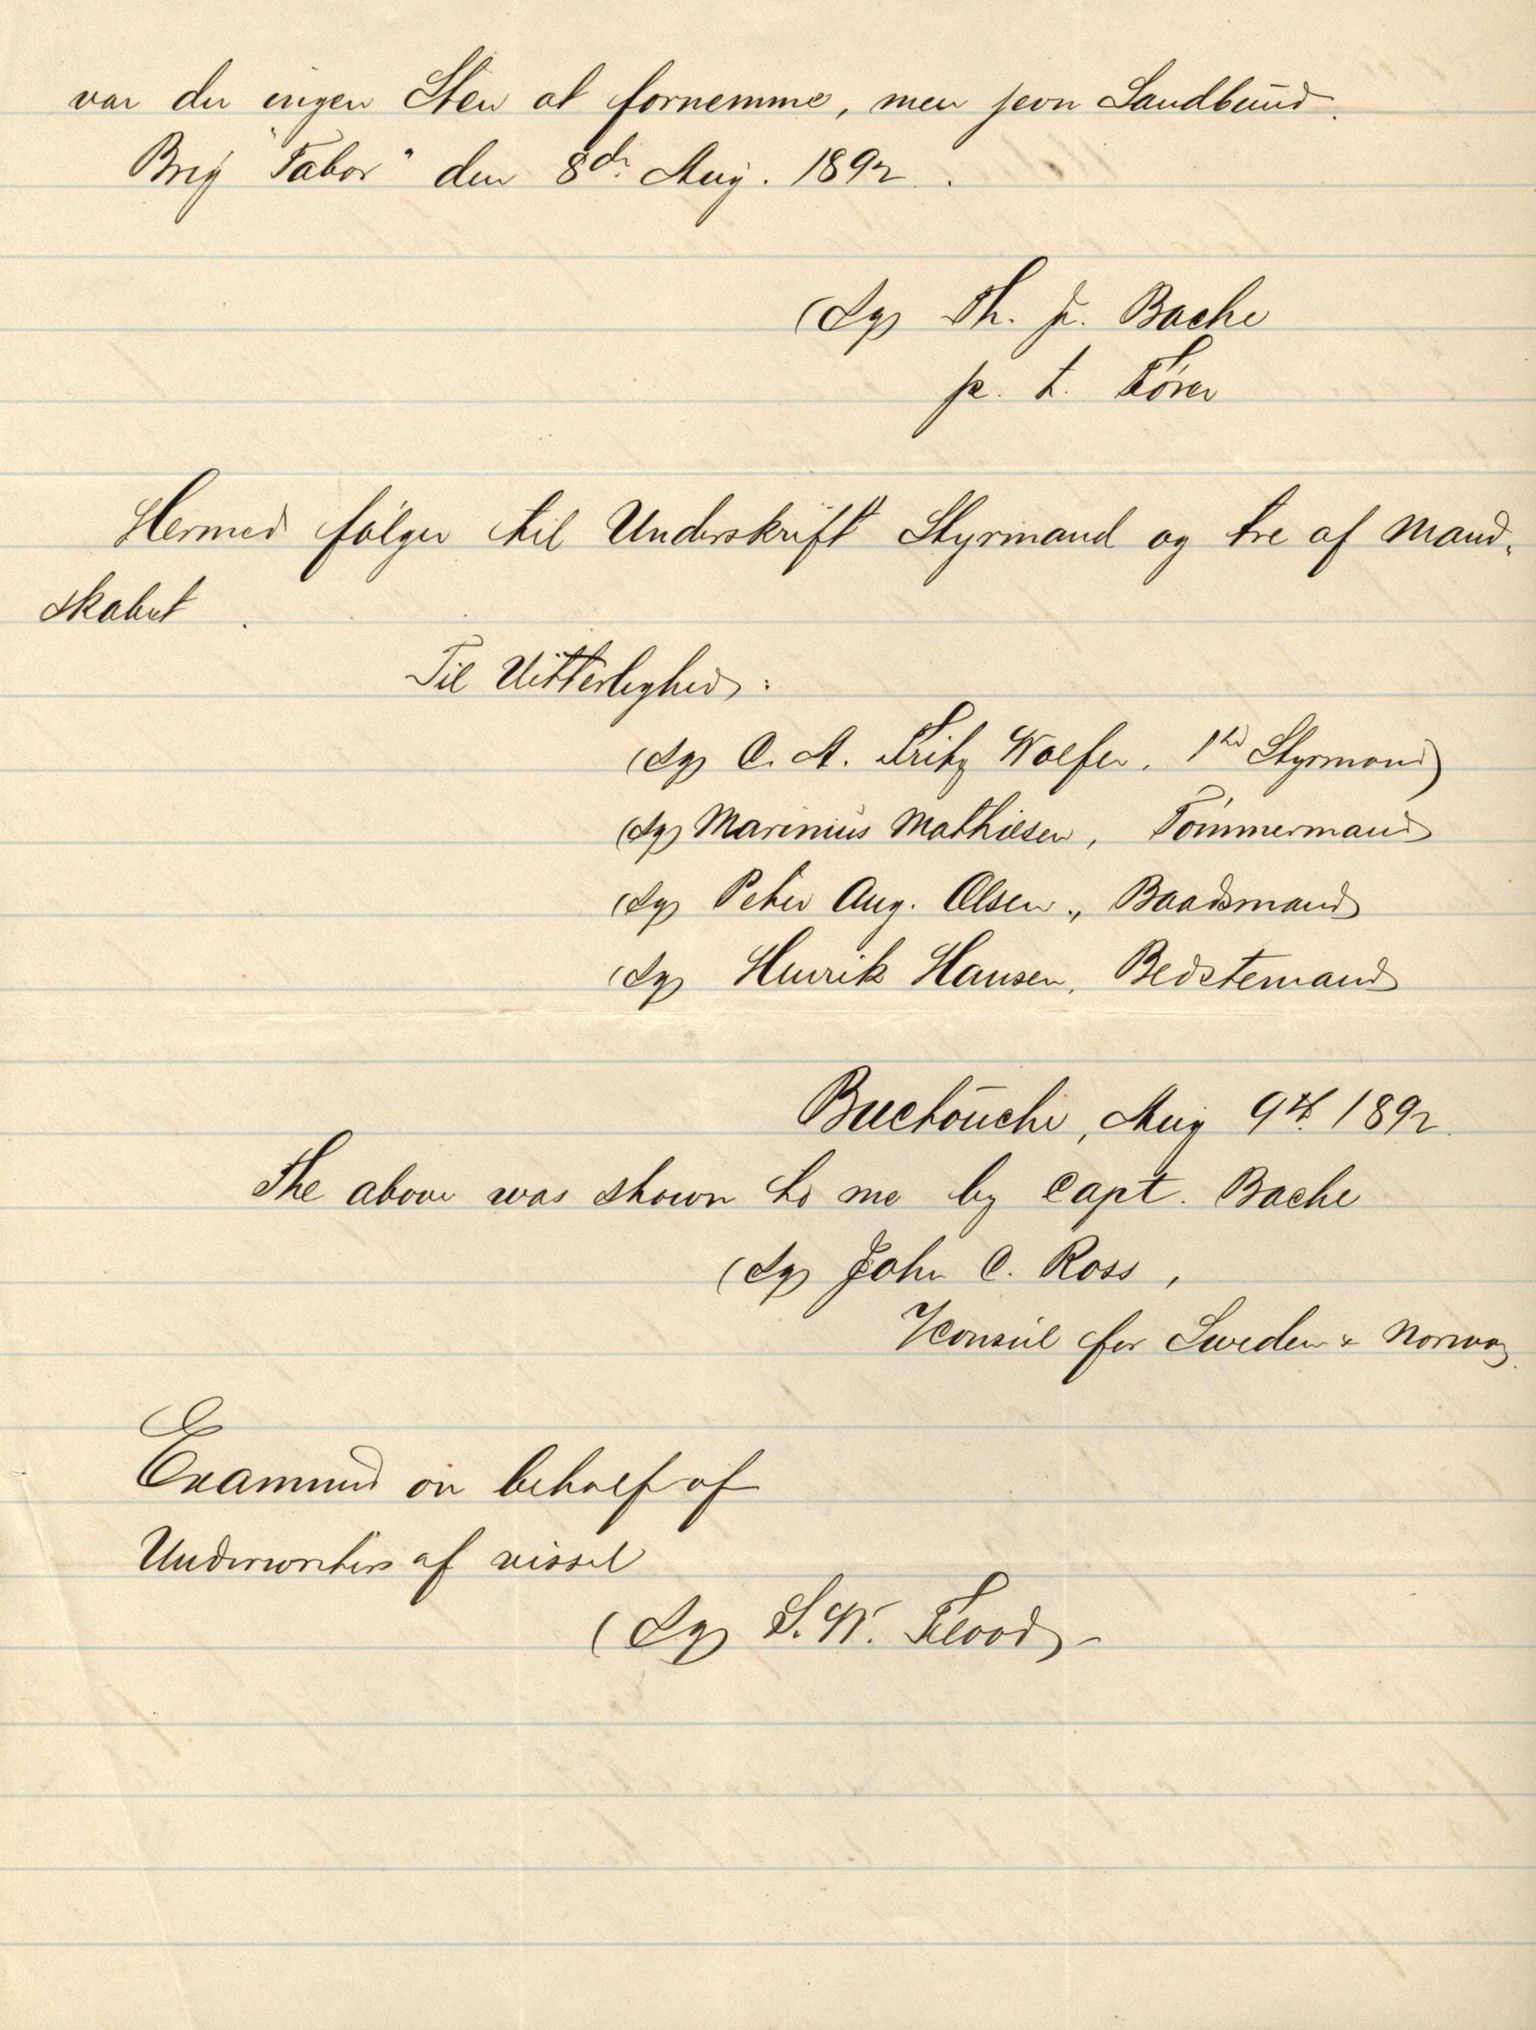 var der ingen Sten at fornemme, men jevn Sandbund.
Brig "Tabor" den 8de Aug. 1892.
(Sg) Th. J. Bache
p. t. Fører
Hermed følger til Underskrift Styrmand og tre af Mand-
skabet.
Til Vitterlighed:
(Sg) C. A. Fritz Wolfer, 1ste Styrmand)
(Sg) Marinius Mathiesen, Tömmermand
(Sg) Peter Aug. Olsen, Baadsmand
(Sg) Henrik Hansen, Bedstemand
Buctouche, Aug 9th 1892.
The above was shown to me by Capt. Bache
(Sg) John C. Ross,
V/Consul for Sweden & Norway.
Examined on behalf of
Underwriters of vessel
(Sg) S. W. Flood